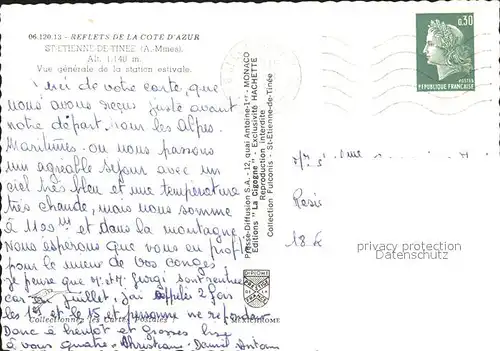 06.120.13 - REFLETS DE LA COTE D'AZUR
ST-ETIENNE-DE-TINEE (A.-Mmes).
Alt. 1.140 m.
Vue générale de la station estivale.
Merci de votre carte, que
nous avons reçus juste avant
notre départ pour les Alpes.
Maritimes. ou nous passons
un agréable séjour avec un
ciel très bleu et une température
très chaude, mais nous somme
à 1100 m et dans la montagne
Nous espérons que vous en profit
pour le mieux de vos congés
je pense que Mr et Me sont rentrée
car Juillet, j'ai appelés 2 fois
les 13 et le 15 et personne ne répondais
Donc à bientôt et Grosses bise
à vous quatre. Christiane. Daniel
Collectionnez les Cartes Postales
MEXICHROME
Presse-Diffusion S.A. - 12, quai Antoine-1er - MONACO
Editions "La Cigogne" - Exclusivité HACHETTE
Reproduction interdite
Collection Fulconis - St-Etienne-de-Tinée
0,30
POSTES
REPUBLIQUE FRANÇAISE
18
privacy protection
Datenschutz